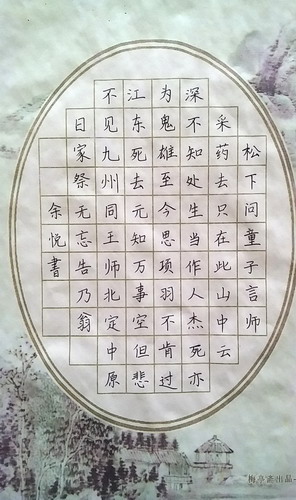 松下问童子言师
采药去只在此山中云
深不知处生当作人杰死亦
为鬼雄至今思项羽不肯过
江东死去元知万事空但悲
不见九州同王师北定中原
日家祭无忘告乃翁
余悦書
出品